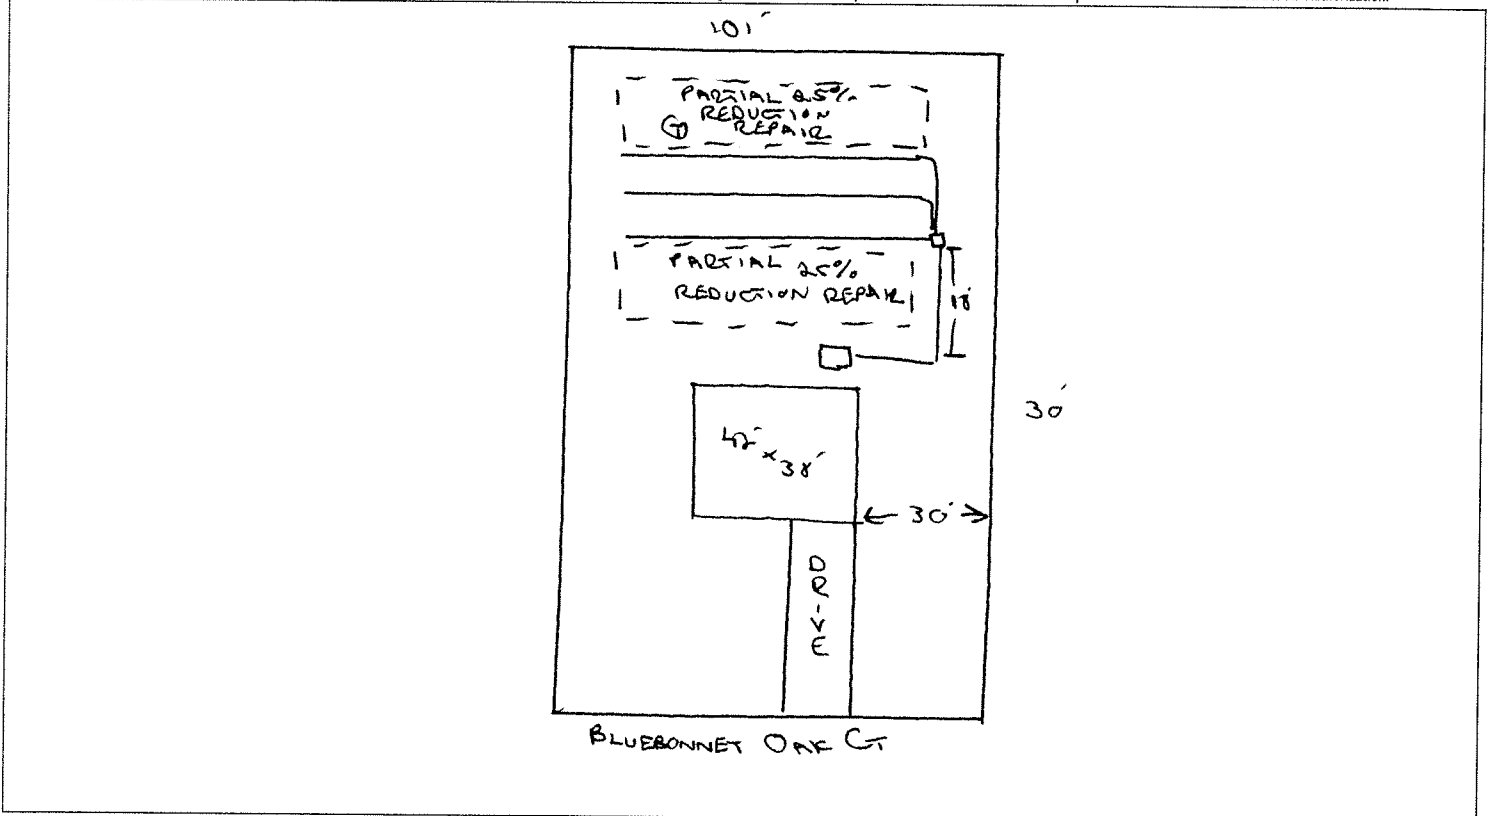 101'
PARTIAL 25%
REDUCTION
REPAIR
PARTIAL 25%
REDUCTION REPAIR
18'
30'
42' x 38'
30'
DRIVE
BLUEBONNET OAK CT